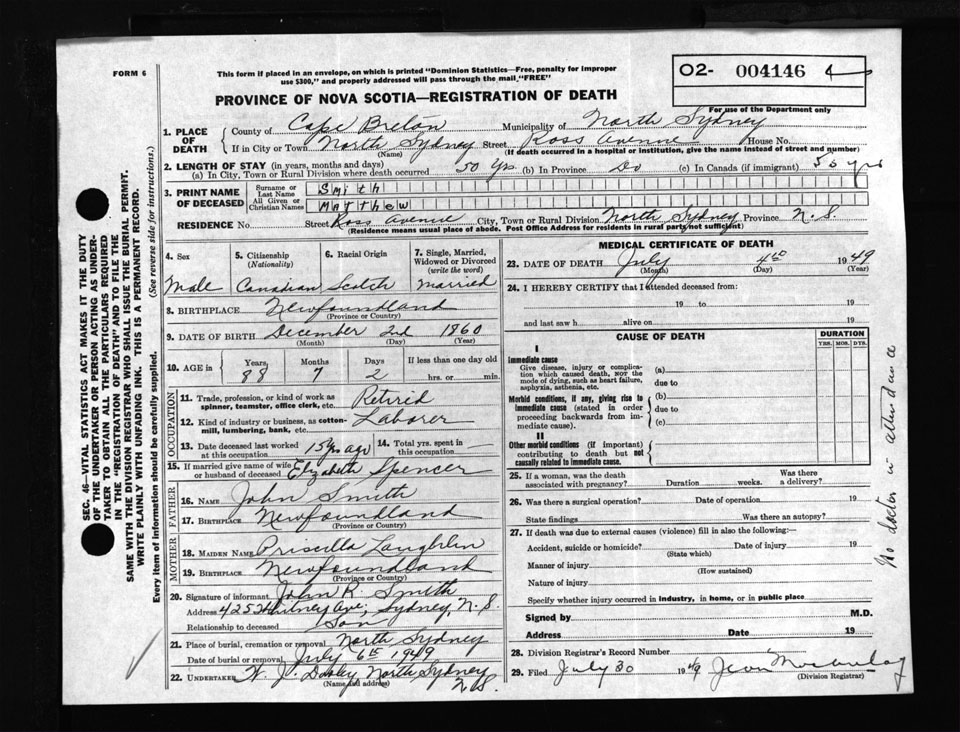 FORM 6
This form if placed in an envelope, on which is printed "Dominion Statistics—Free, penalty for improper
use $300," and properly addressed will pass through the mail "FREE"
PROVINCE OF NOVA SCOTIA—REGISTRATION OF DEATH
O2- 004146 4
For use of the Department only
1. PLACE OF DEATH
County of Cape Breton Municipality of North Sydney
If in City or Town North Sydney Street Ross Avenue House No.
(Name) (If death occurred in a hospital or institution, give the name instead of street and number)
2. LENGTH OF STAY (in years, months and days)
(a) In City, Town or Rural Division where death occurred 50 Yrs. (b) In Province Do (c) In Canada (if immigrant) 50 yrs
3. PRINT NAME OF DECEASED
Surname or Last Name Smith
All Given or Christian Names Matthew
RESIDENCE No. Street Ross Avenue City, Town or Rural Division North Sydney Province N.S.
(Residence means usual place of abode. Post Office Address for residents in rural parts not sufficient)
4. Sex Male
5. Citizenship (Nationality) Canadian
6. Racial Origin Scotch
7. Single, Married, Widowed or Divorced (write the word) Married
8. BIRTHPLACE Newfoundland
(Province or Country)
9. DATE OF BIRTH December 2nd 1860
(Month) (Day) (Year)
10. AGE in Years 88 Months 7 Days 2 If less than one day old hrs. or min.
OCCUPATION
11. Trade, profession, or kind of work as spinner, teamster, office clerk, etc. Retired
12. Kind of industry or business, as cotton-mill, lumbering, bank, etc. Laborer
13. Date deceased last worked at this occupation 15 yrs ago 14. Total yrs. spent in this occupation
15. If married give name of wife or husband of deceased Elizabeth Spencer
FATHER
16. NAME John Smith
17. BIRTHPLACE Newfoundland
(Province or Country)
MOTHER
18. MAIDEN NAME Priscilla Laughlin
19. BIRTHPLACE Newfoundland
(Province or Country)
20. Signature of informant John R. Smith
Address 425 Whitney Ave, Sydney, N.S.
Relationship to deceased Son
21. Place of burial, cremation or removal North Sydney
Date of burial or removal July 6th 1949
22. UNDERTAKER W. J. Dooley North Sydney
(Name and address) N.S.
MEDICAL CERTIFICATE OF DEATH
23. DATE OF DEATH July 4th 1949
(Month) (Day) (Year)
24. I HEREBY CERTIFY that I attended deceased from:
19 to 19
and last saw h alive on 19
CAUSE OF DEATH
DURATION
YRS. MOS. DYS.
I
Immediate cause
Give disease, injury or complication which caused death, NOT the mode of dying, such as heart failure, asphyxia, asthenia, etc.
(a)
due to
Morbid conditions, if any, giving rise to immediate cause (stated in order proceeding backwards from immediate cause).
(b)
due to
(c)
II
Other morbid conditions (if important) contributing to death but not causally related to immediate cause.
25. If a woman, was the death associated with pregnancy? Duration weeks. Was there a delivery?
26. Was there a surgical operation? Date of operation 19
State findings Was there an autopsy?
27. If death was due to external causes (violence) fill in also the following:—
Accident, suicide or homicide? Date of injury 19
(State which)
Manner of injury
(How sustained)
Nature of injury
Specify whether injury occurred in industry, in home, or in public place
Signed by M.D.
Address Date 19
28. Division Registrar's Record Number
29. Filed July 30 1949 Jean
(Division Registrar)
No doctor in attendance
SEC. 46—VITAL STATISTICS ACT MAKES IT THE DUTY
OF THE UNDERTAKER OR PERSON ACTING AS UNDER-
TAKER TO OBTAIN ALL THE PARTICULARS REQUIRED
IN THE "REGISTRATION OF DEATH" AND TO FILE THE
SAME WITH THE DIVISION REGISTRAR WHO SHALL ISSUE THE BURIAL PERMIT.
WRITE PLAINLY WITH UNFADING INK. THIS IS A PERMANENT RECORD.
Every item of information should be carefully supplied. (See reverse side for instructions.)